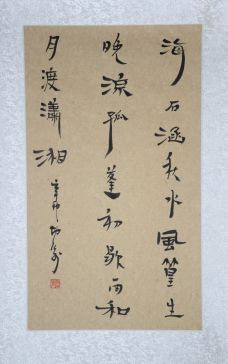 海石涵秋水風篁生
晚涼孤蓬初歇雨和
月渡瀟湘